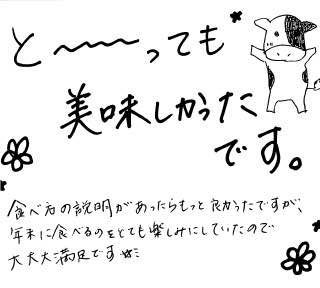 と〜〜〜っても
美味しかった
です。
食べ方の説明があったらもっと良かったですが、
年末に食べるのをとても楽しみにしていたので
大大大満足です☆ミ